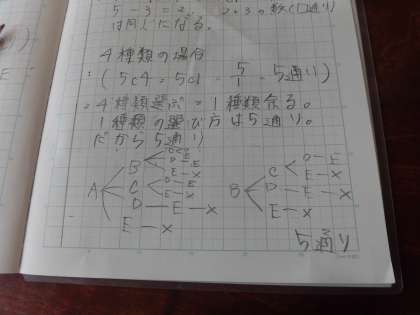 5-3=2。
2,3の数
は同じになる。
4種類の場合
(5C4=5C1= 5/1 = 5通り)
4種類選ぶ=1種類余る。
1種類の選び方は5通り。
だから5通り
A B C D E
C D E
E X
D E X
E X
B C D E
E X
D E X
E X
5通り